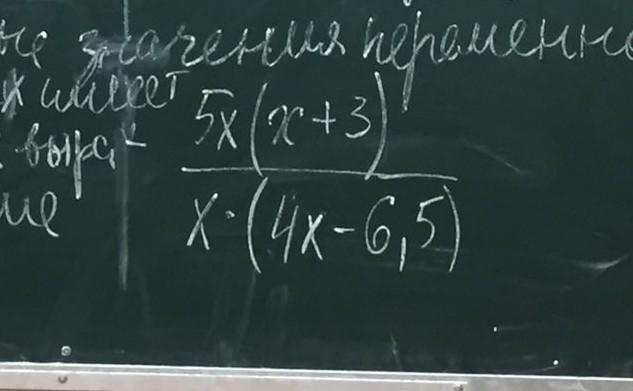 ые значения переменно
х имеет
выра-
ие
5x(x+3)
x·(4x-6,5)